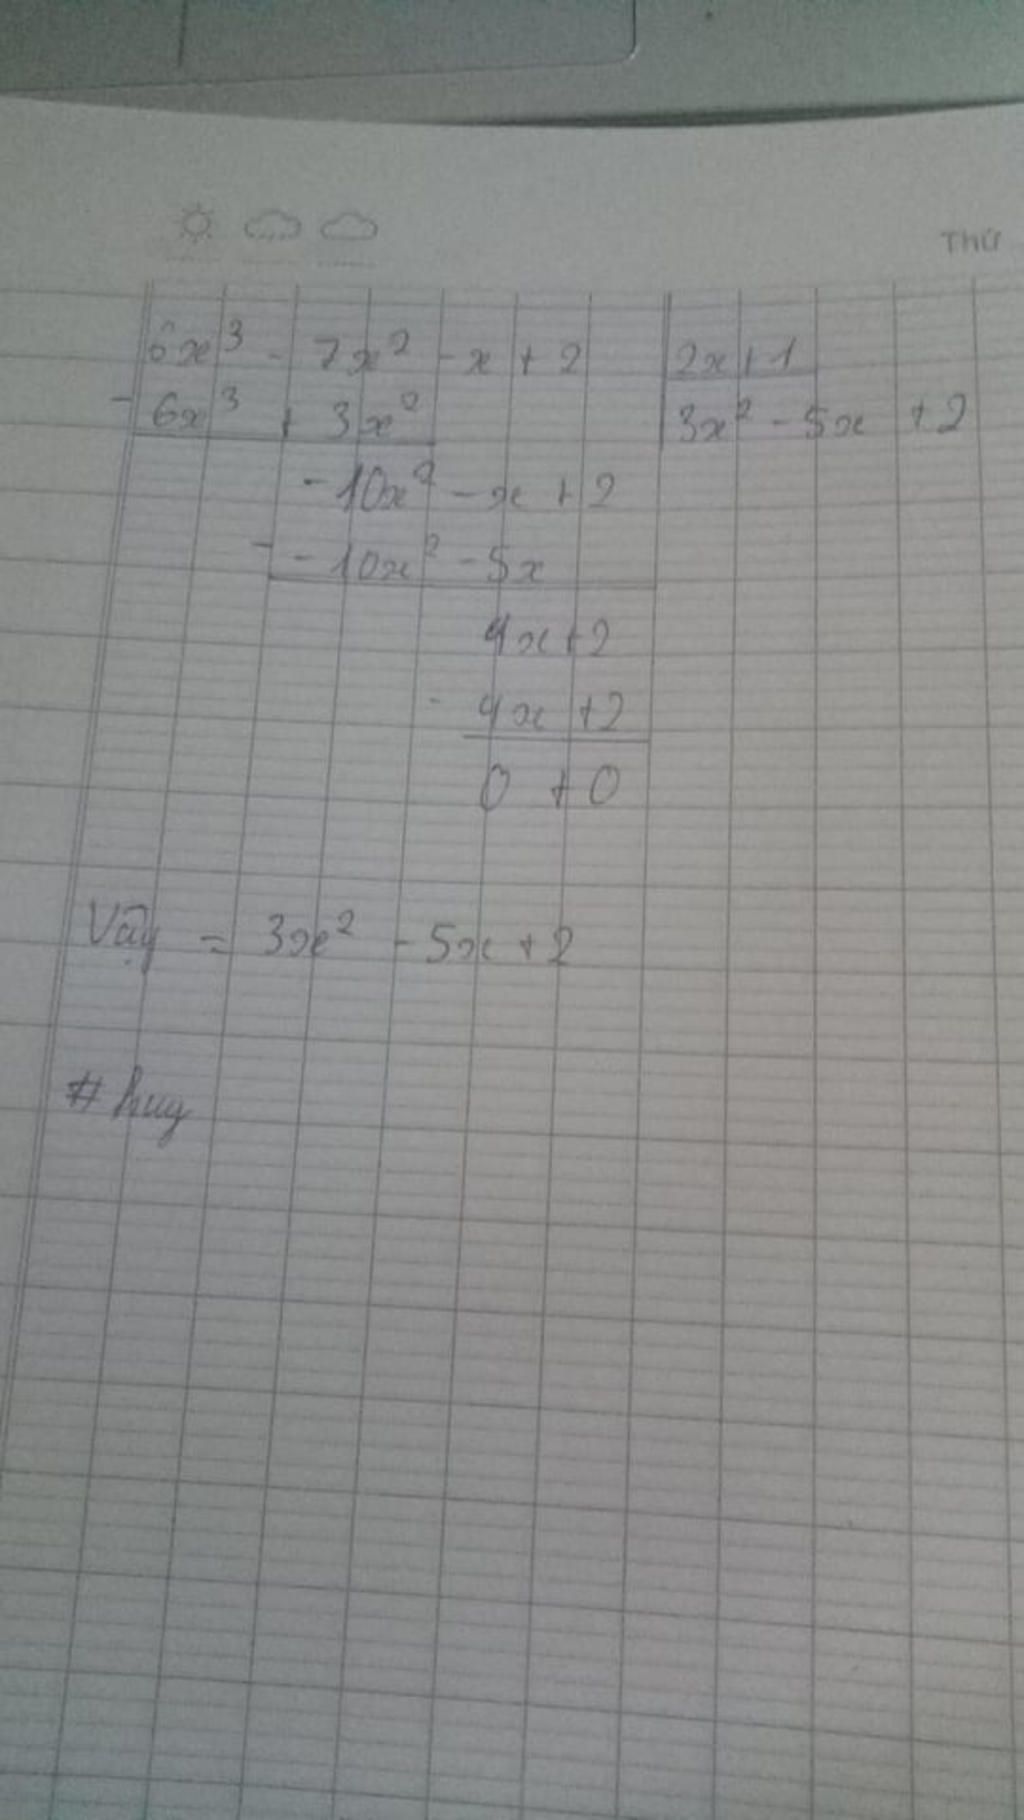 THỨ
6x³ - 7x² - x + 2 2x + 1
- 6x³ + 3x² 3x² - 5x + 2
- 10x² - x + 2
- - 10x² - 5x
4x + 2
- 4x + 2
0 + 0
Vậy = 3x² - 5x + 2
# huy